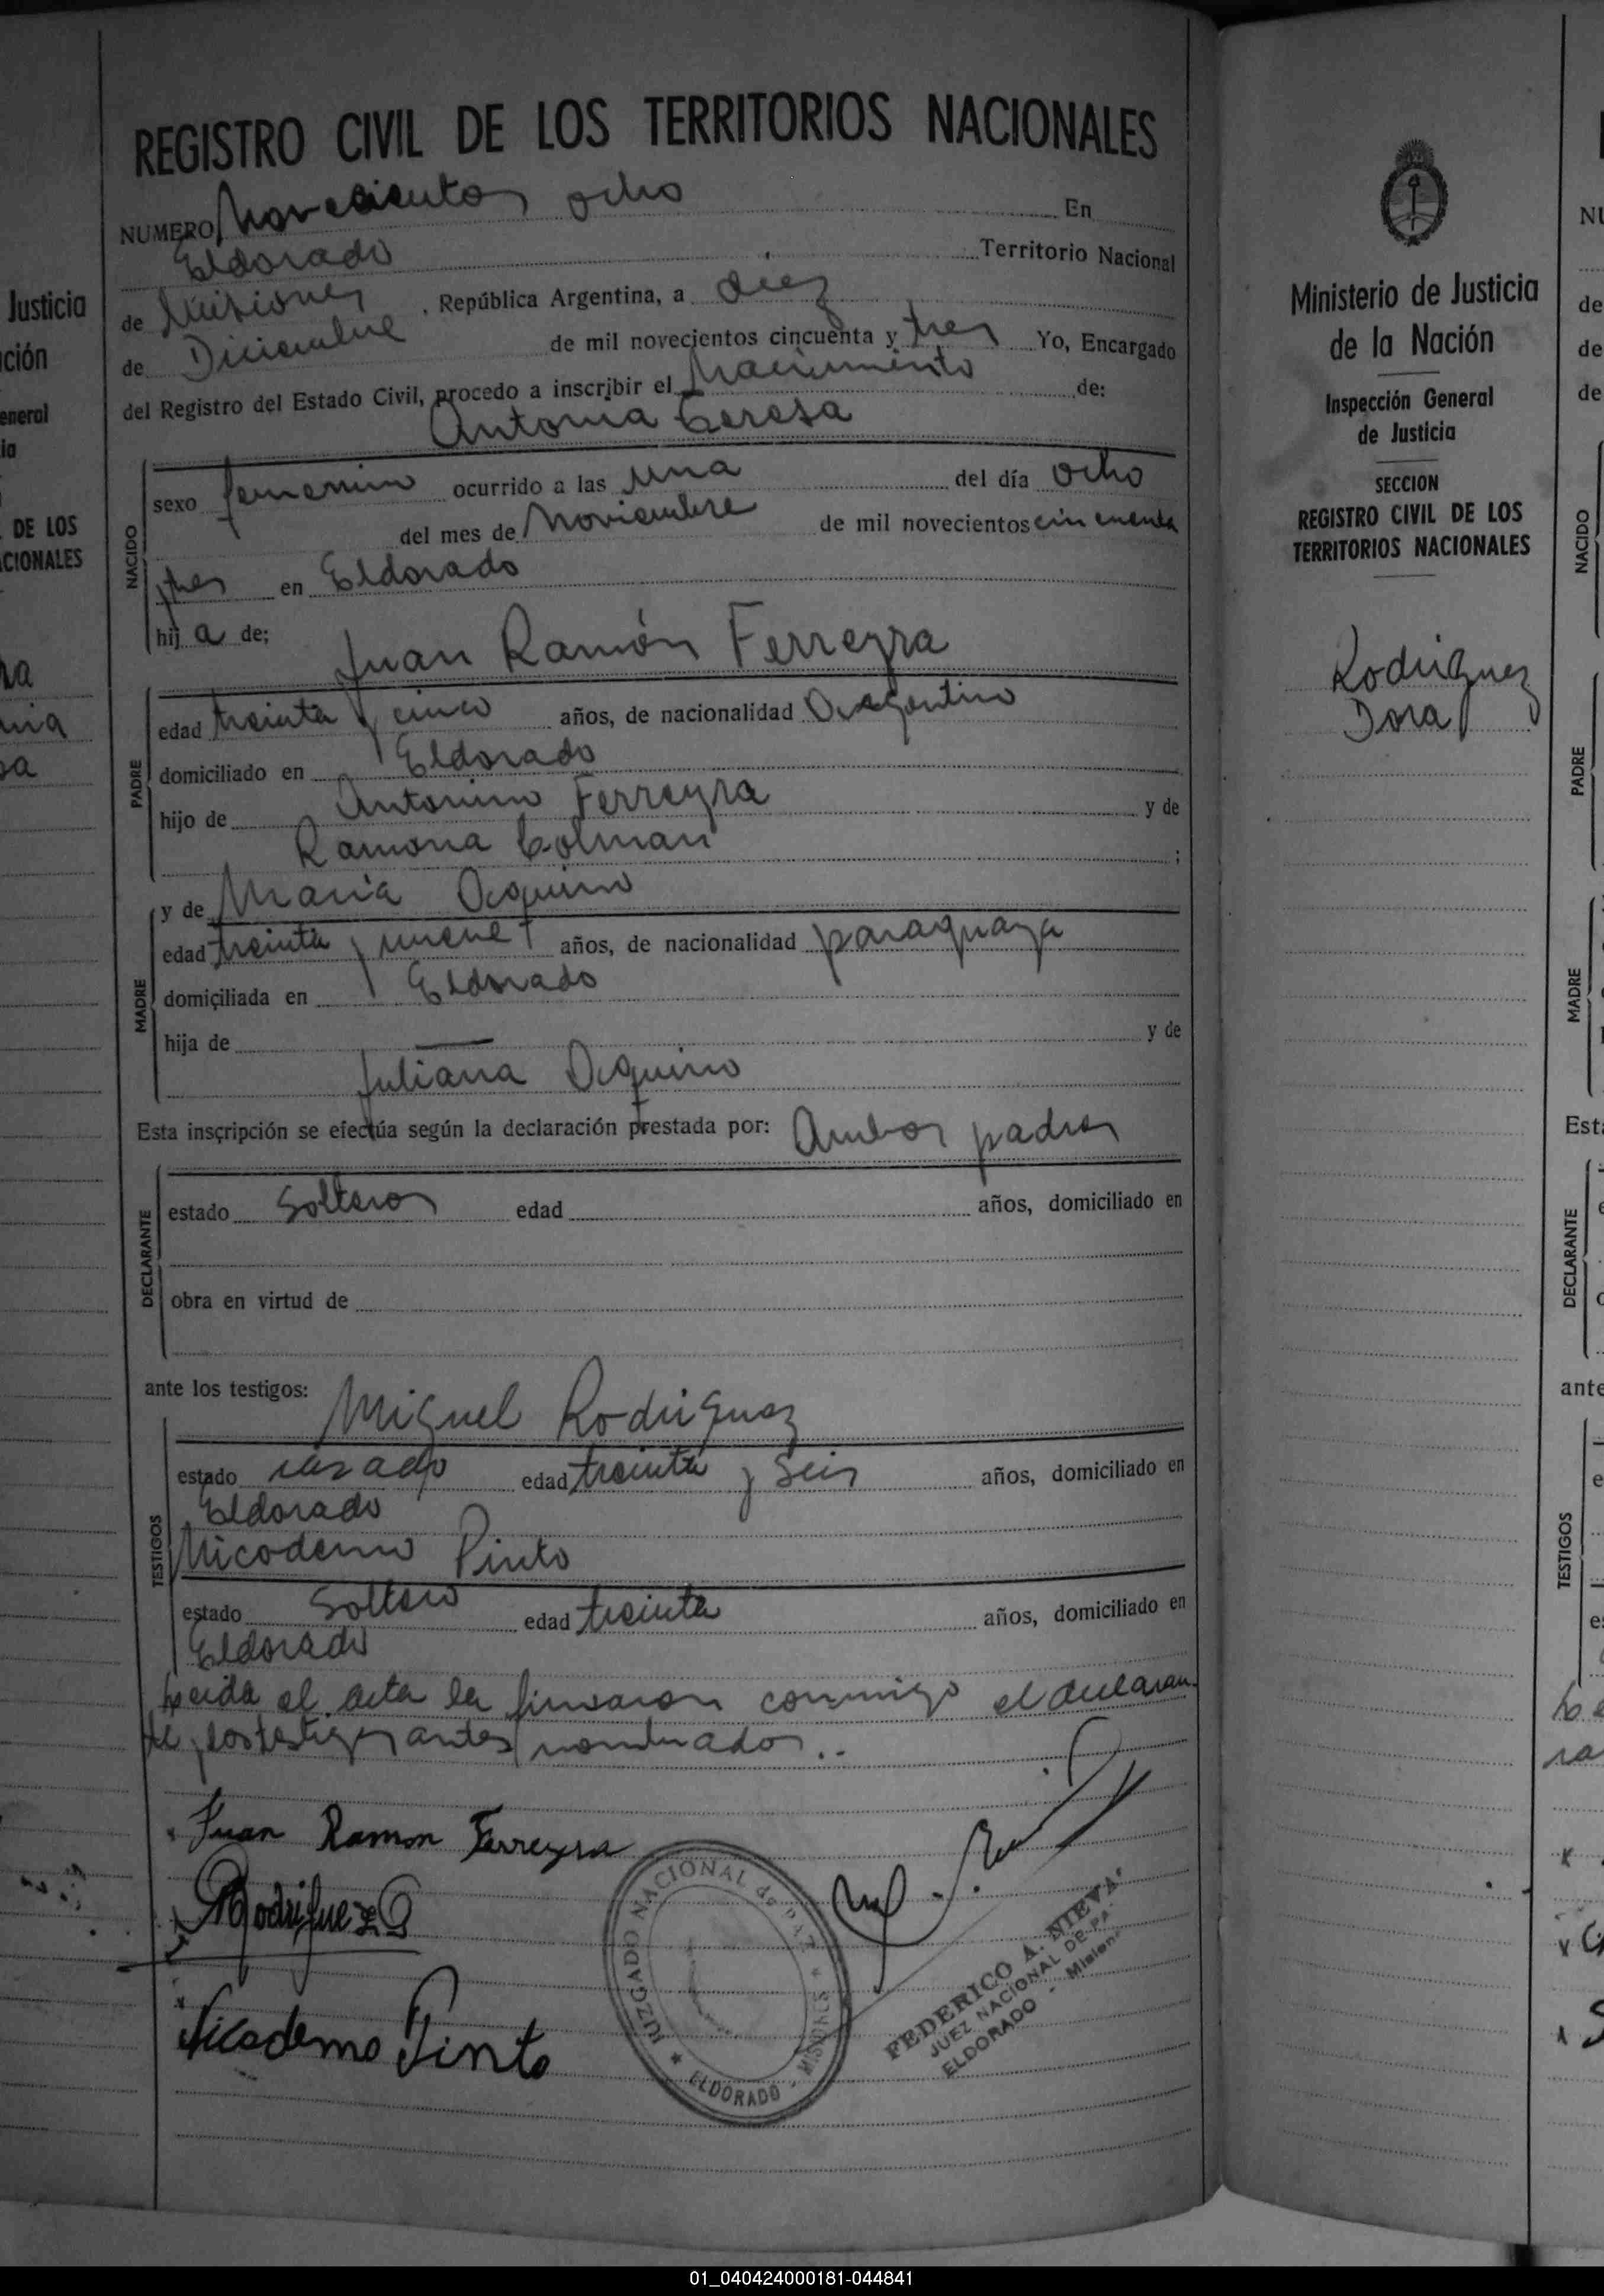 REGISTRO CIVIL DE LOS TERRITORIOS NACIONALES
NUMERO Novecientos ocho En
Eldorado Territorio Nacional
de Misiones, República Argentina, a diez
de Diciembre de mil novecientos cincuenta y tres Yo, Encargado
del Registro del Estado Civil, procedo a inscribir el Nacimiento de:
Antonia Teresa
NACIDO
sexo femenino ocurrido a las una del día ocho
del mes de Noviembre de mil novecientos cincuenta
tres en Eldorado
hija de;
Juan Ramón Ferreyra
PADRE
edad treinta y cinco años, de nacionalidad Argentino
domiciliado en Eldorado
hijo de Antonino Ferreyra y de
Ramona Colman ;
y de Maria Aquino
MADRE
edad treinta y nueve años, de nacionalidad paraguaya
domiciliada en Eldorado
hija de — y de
Juliana Aquino
Esta inscripción se efectúa según la declaración prestada por: Ambos padres
DECLARANTE
estado Solteros edad años, domiciliado en
obra en virtud de
ante los testigos:
Miguel Rodriguez
TESTIGOS
estado casado edad treinta y seis años, domiciliado en
Eldorado
Nicodemo Pinto
estado Soltero edad treinta años, domiciliado en
Eldorado
Leida el acta la firmaron conmigo el declaran-
te y los testigos antes nombrados..
Juan Ramon Ferreyra
Rodriguez
Nicodemo Pinto
JUZGADO NACIONAL de PAZ
ELDORADO - MISIONES
FEDERICO A. NIEVA
JUEZ NACIONAL DE PA
ELDORADO - Mision
Ministerio de Justicia
de la Nación
Inspección General
de Justicia
SECCION
REGISTRO CIVIL DE LOS
TERRITORIOS NACIONALES
Rodriguez
Dora
Justicia
ción
eneral
ia
DE LOS
CIONALES
NU
de
de
de
NACIDO
PADRE
MADRE
Est
DECLARANTE
ante
TESTIGOS
01_040424000181-044841